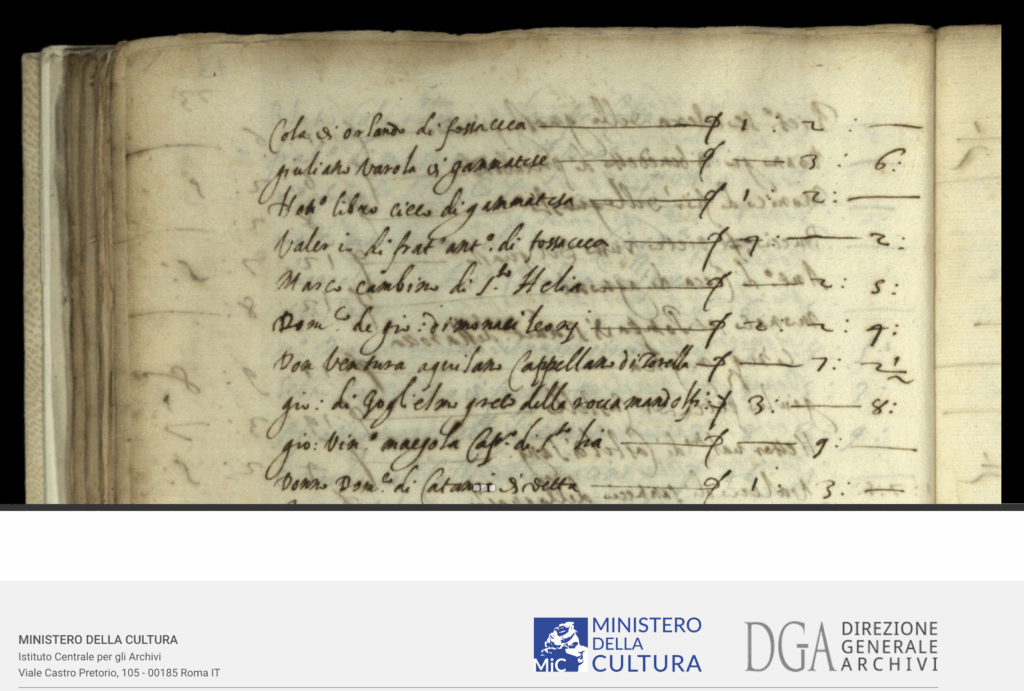 Cola di orlando di fossaceca ₰ 1 : 2 : —
giuliano varola di gammatese ₰ — 3 : 6 :
Hon.o libro cicco di gammatesa ₰ 1 : 2 : —
Valerio di frat.o ant.o di fossaceca ₰ 4 : — 2 :
Marco cambino di S.to Helia ₰ — 2 : 5 :
Dom.co de gio: di monacileony ₰ 2 : 4 :
Don Ventura aquilano Cappellano di Torella ₰ — 7 : 2
gio: di Goglielmo greco della roccamandolfi: ₰ 3 : — 8 :
gio: Vin.o di S.to lia ₰ — 9 :
Donno Dom.co di di detta ₰ 1 : 3 : —
MINISTERO DELLA CULTURA
Istituto Centrale per gli Archivi
Viale Castro Pretorio, 105 - 00185 Roma IT
MiC
MINISTERO
DELLA
CULTURA
DGA
DIREZIONE
GENERALE
ARCHIVI